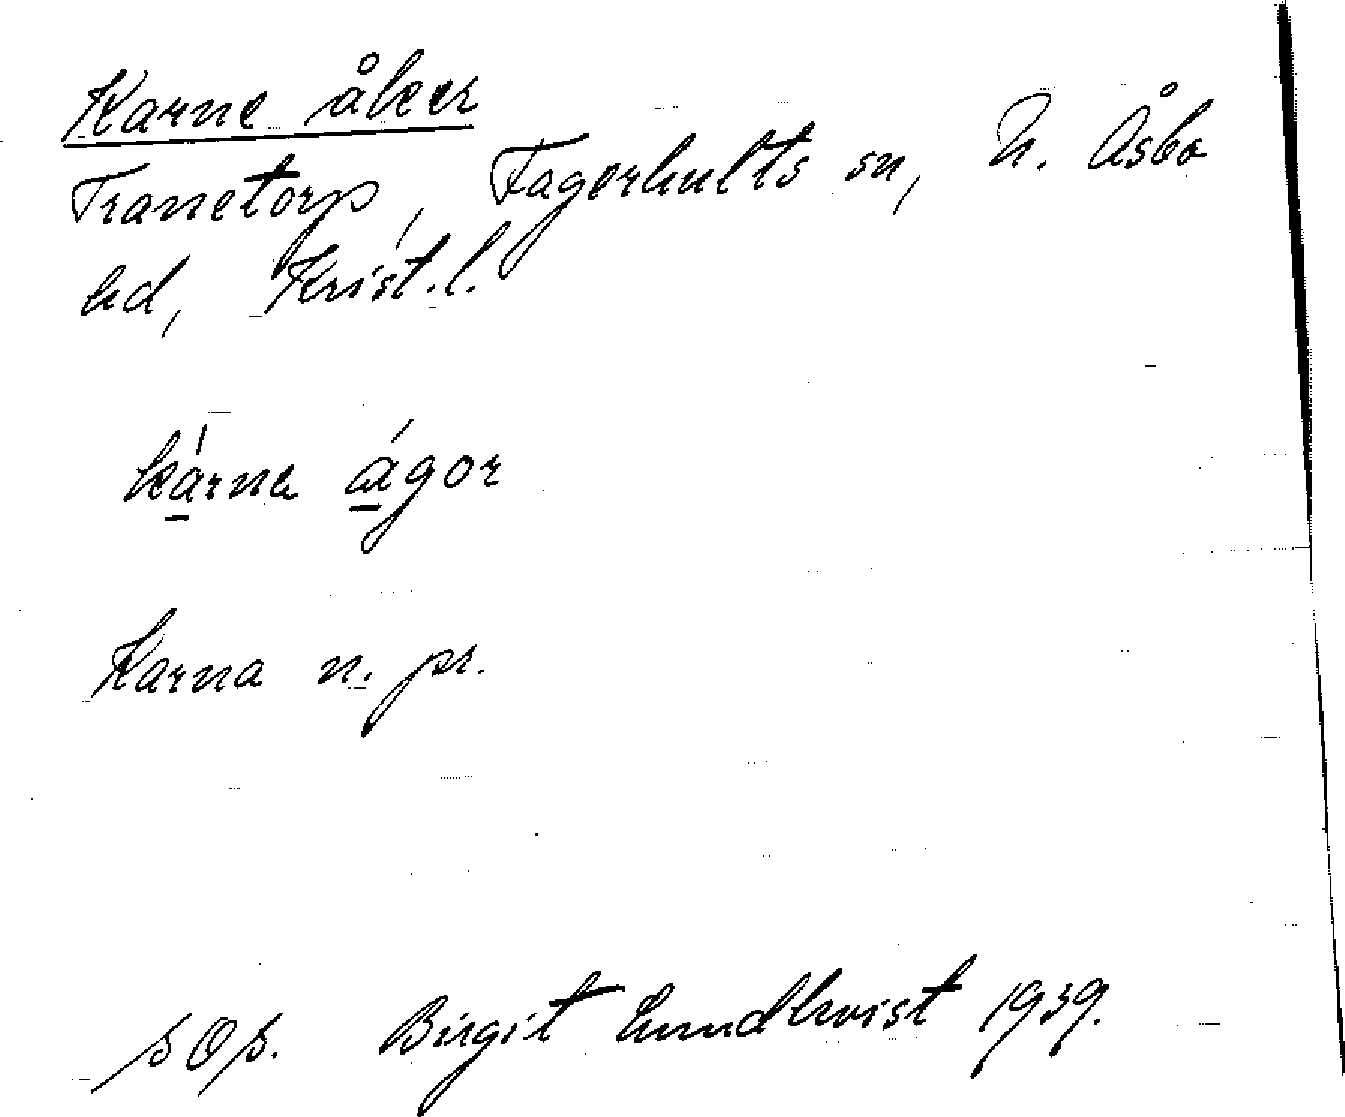 Karne åker
Tranetorp, Fagerhults sn, N. Åsbo
hd, Krist.l.
kárna ágor
Karna n. pr.
sOs. Birgit Lundkvist 1939.